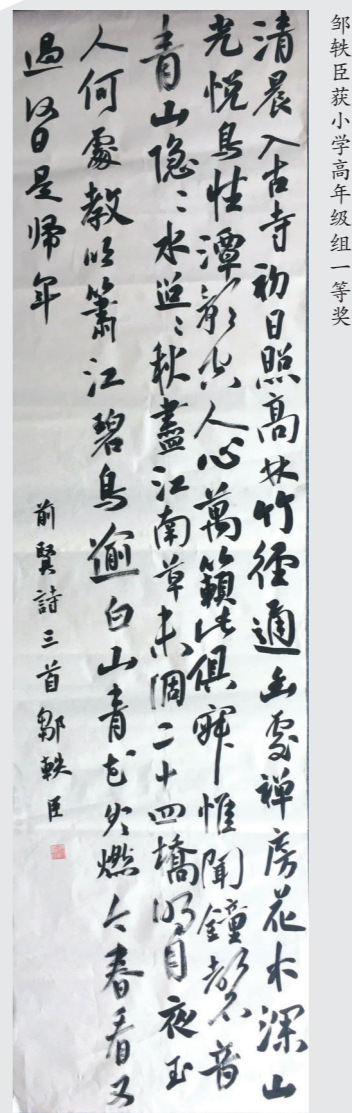 邹轶臣获小学高年级组一等奖
清晨入古寺初日照高林竹徑通幽處禅房花木深山
光悦鳥性潭影空人心萬籟此俱寂惟聞鐘磬音
青山隐〻水迢〻秋盡江南草未凋二十四橋明月夜玉
人何處教吹簫江碧鳥逾白山青花欲燃今春看又
過何日是歸年
前賢詩三首鄒軼臣